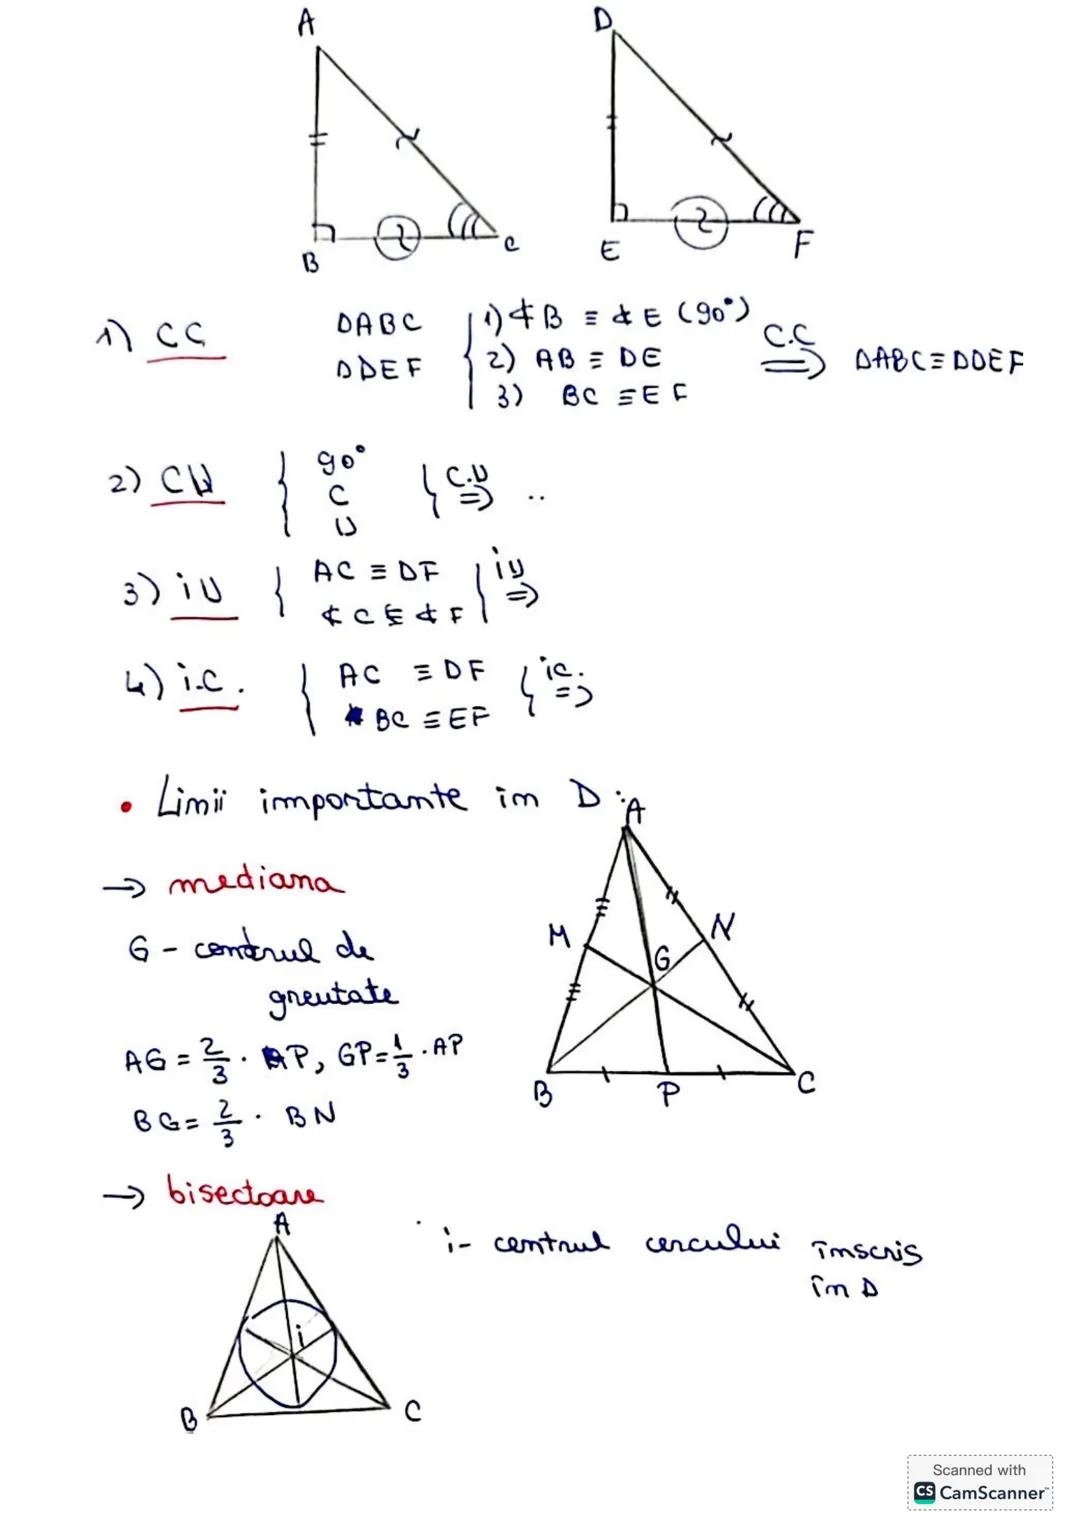 A
D
B
C
E
F
1) CC
ΔABC
ΔDEF
1) ∢B ≡ ∢E (90°)
2) AB ≡ DE
3) BC ≡ EF
C.C
⇒ ΔABC ≡ ΔDEF
2) CU { 90°
C
U
} C.U ⇒ ..
3) iU { AC ≡ DF
∢C ≡ ∢F } iU ⇒
4) i.C. { AC ≡ DF
BC ≡ EF } ic. ⇒
• Linii importante în Δ:
→ mediana
G - centrul de
greutate
AG = 2/3 · AP, GP = 1/3 · AP
BG = 2/3 · BN
A
M
N
G
B
P
C
→ bisectoare
A
i
B
C
i - centrul cercului înscris
în Δ
Scanned with
CS CamScanner